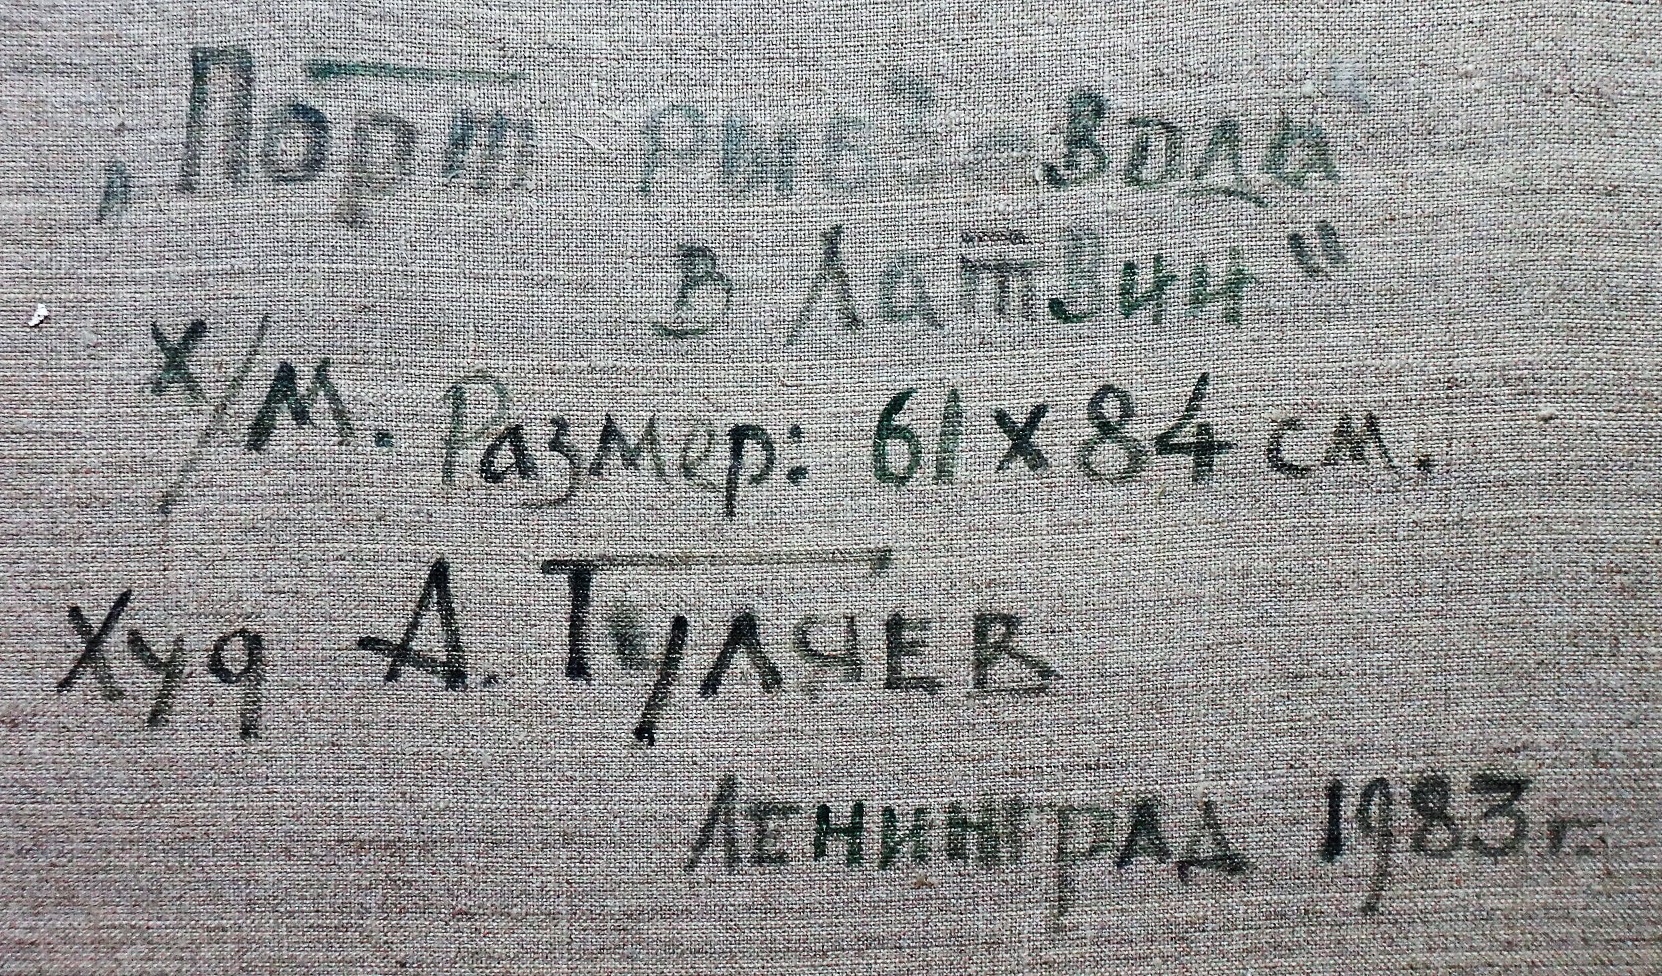 „Порт рыб-завода
в Латвии"
х/м. Размер: 61х84 см.
Худ А. Тулячев
ЛЕНИНГРАД 1983 г.